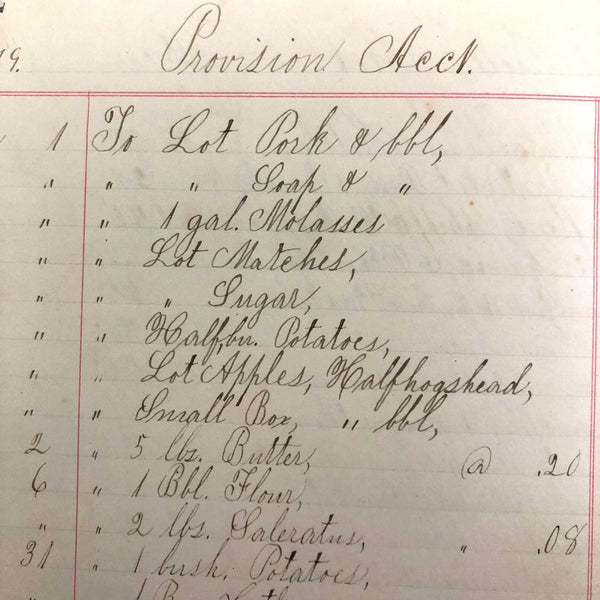 Provision Acct.
9.
1 To Lot Pork & bbl,
" " " Soap & "
" " 1 gal. Molasses
" " Lot Matches,
" " " Sugar,
" " Half bu. Potatoes,
" " Lot Apples, Half hogshead,
" " Small Box, " bbl,
2 " 5 lbs. Butter, @ .20
6 " 1 Bbl. Flour,
" " 2 lbs. Saleratus, " .08
31 " 1 bush. Potatoes,
" 1